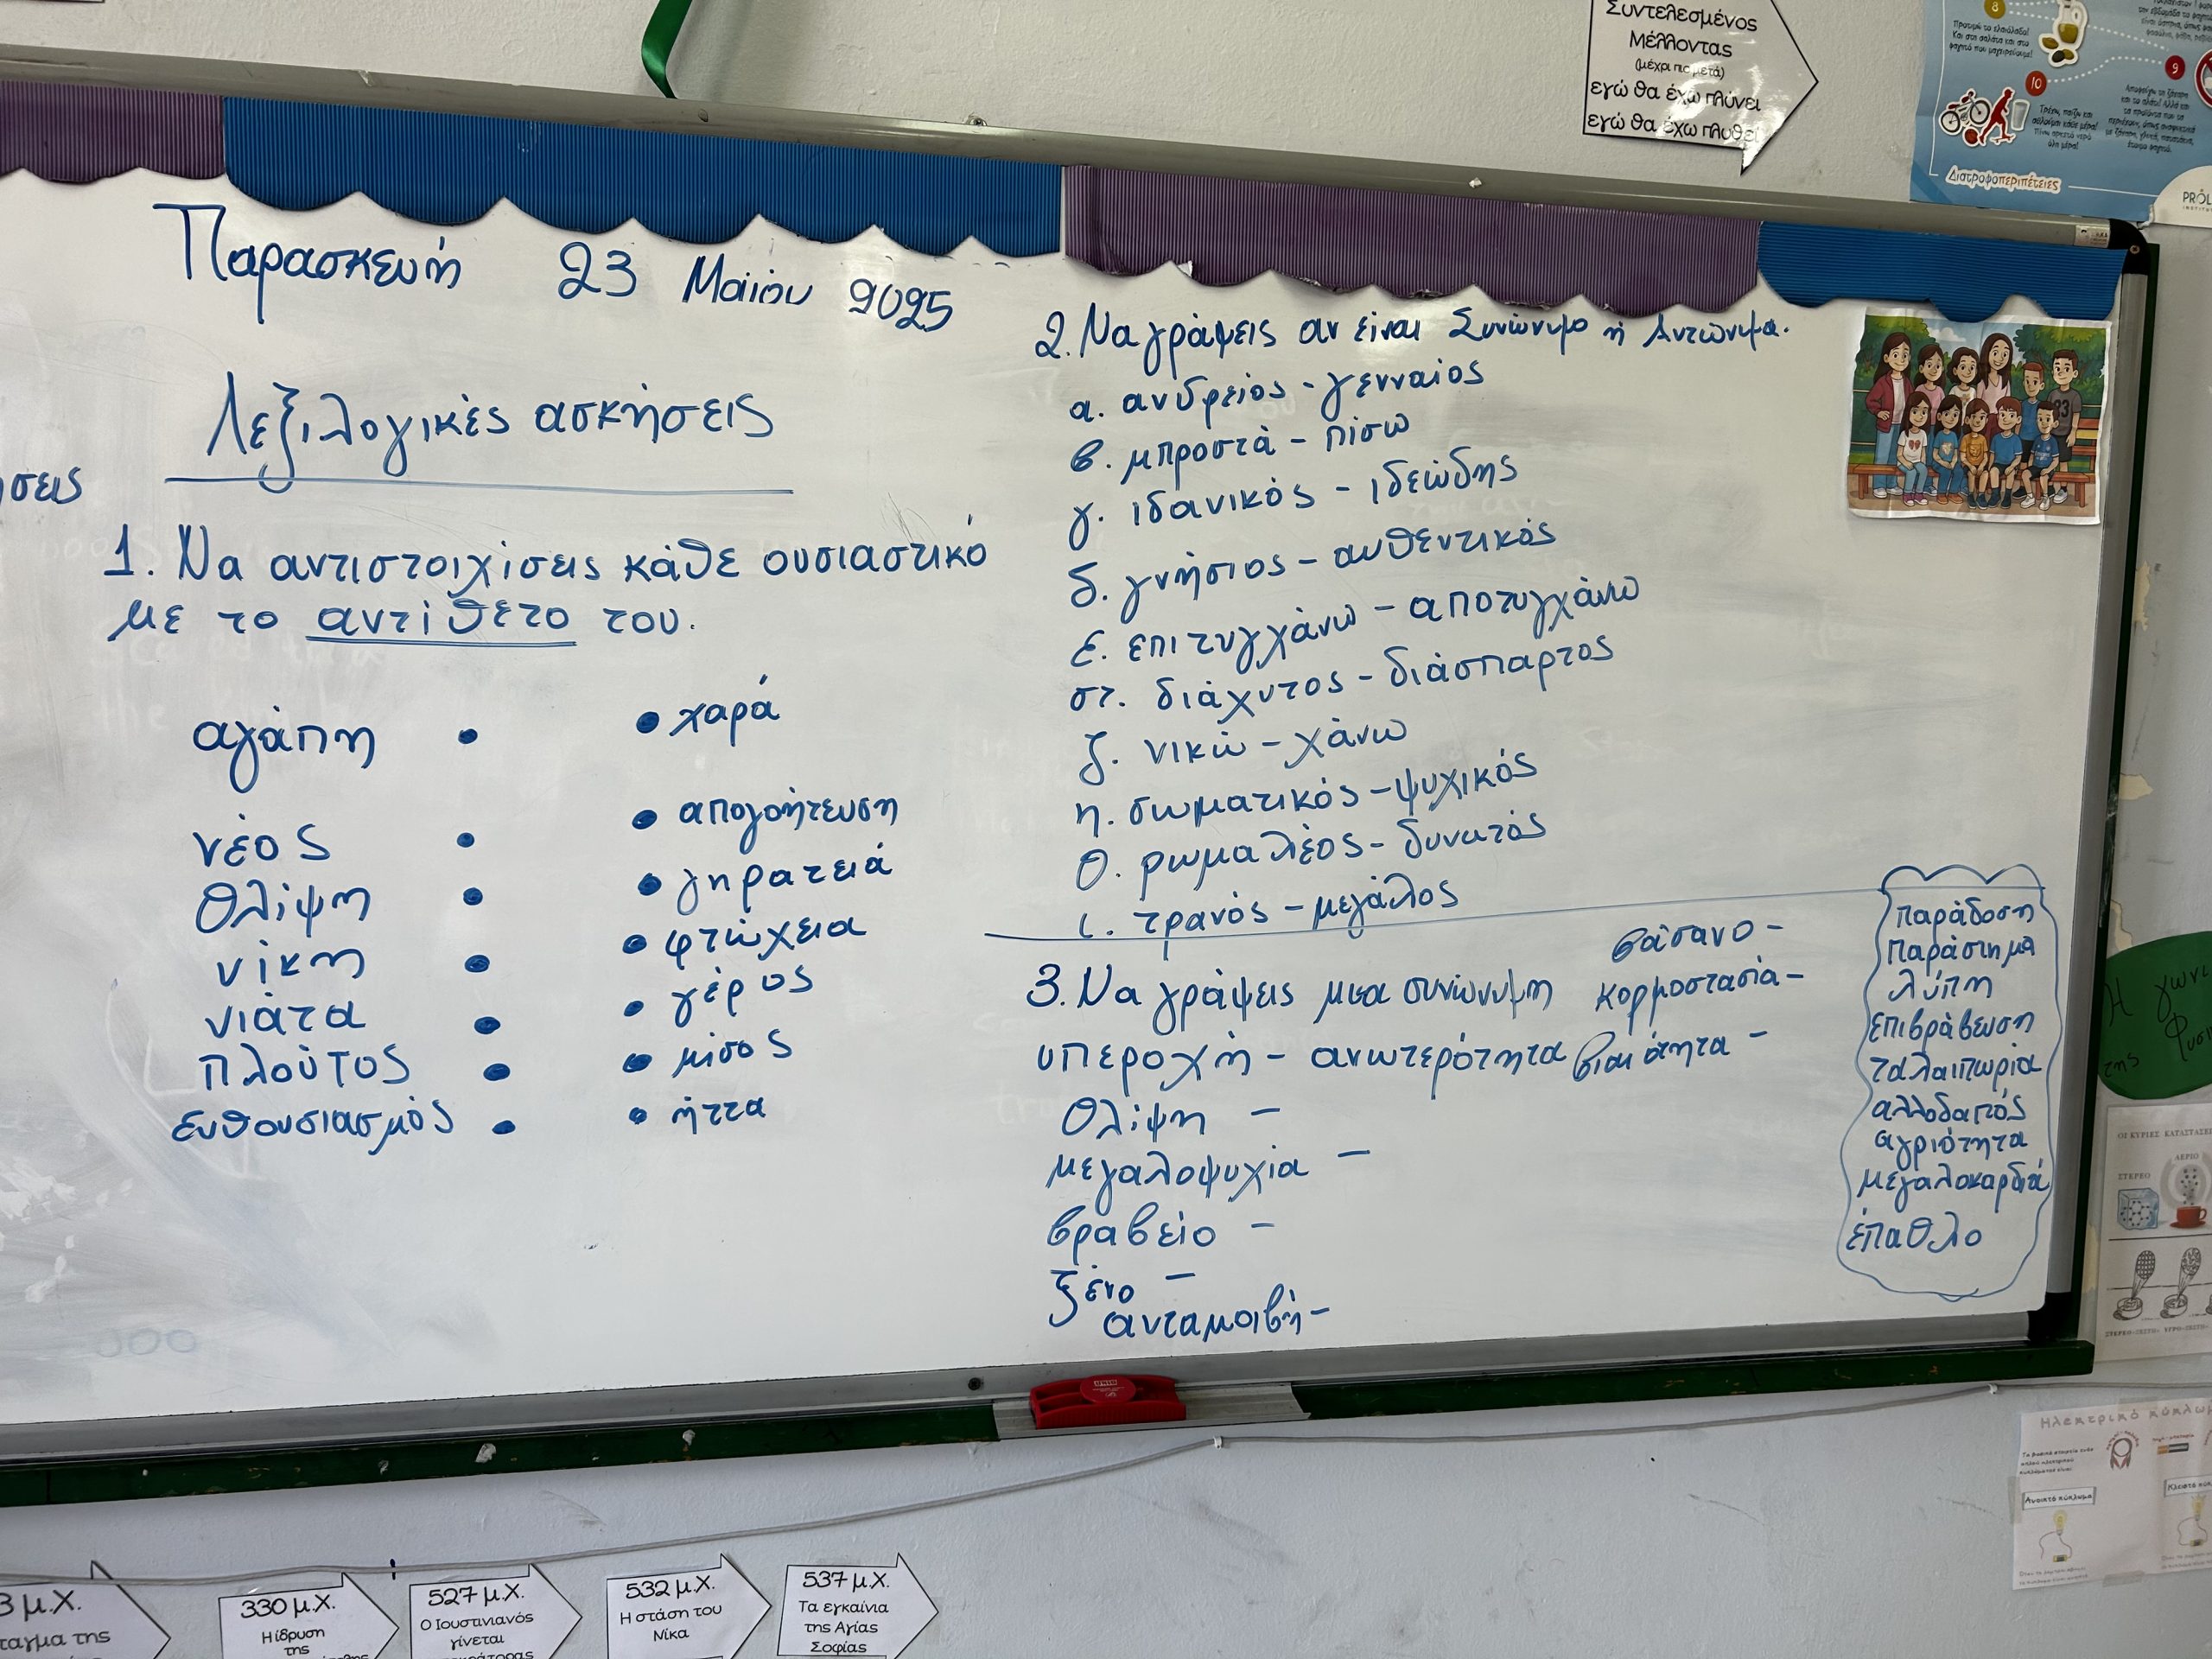 Συντελεσμένος
Μέλλοντας
(μέχρι πιο μετά)
εγώ θα έχω πλύνει
εγώ θα έχω πλυθεί
8
9
10
Διατροφοπεριπέτειες
PROL
Παρασκευή 23 Μαΐου 2025
Λεξιλογικές ασκήσεις
σεις
1. Να αντιστοιχίσεις κάθε ουσιαστικό
με το αντίθετο του.
αγάπη • • χαρά
νέος • • απογοήτευση
θλίψη • • γηρατειά
νίκη • • φτώχεια
νιάτα • • γέρος
πλούτος • • μίσος
ενθουσιασμός • • ήττα
2. Να γράψεις αν είναι Συνώνυμο ή Αντώνυμα.
α. ανδρείος - γενναίος
β. μπροστά - πίσω
γ. ιδανικός - ιδεώδης
δ. γνήσιος - αυθεντικός
ε. επιτυγχάνω - αποτυγχάνω
στ. διάχυτος - διάσπαρτος
ζ. νικώ - χάνω
η. σωματικός - ψυχικός
θ. ρωμαλέος - δυνατός
ι. τρανός - μεγάλος
3. Να γράψεις μια συνώνυμη
υπεροχή - ανωτερότητα
θλίψη -
μεγαλοψυχία -
βραβείο -
ξένο -
ανταμοιβή -
βάσανο -
κορμοστασία -
βιαιότητα -
παράδοση
παράστημα
λύπη
επιβράβευση
ταλαιπωρία
αλλοδαπός
αγριότητα
μεγαλοκαρδιά
έπαθλο
Η γωνι
της Φυσι
ΟΙ ΚΥΡΙΕΣ ΚΑΤΑΣΤΑΣΕΙ
ΑΕΡΙΟ
ΣΤΕΡΕΟ
Ηλεκτρικό κύκλωμ
Ανοικτό κύκλωμα
3 μ.Χ.
ταγμα της
330 μ.Χ.
Η ίδρυση
της
527 μ.Χ.
Ο Ιουστινιανός
γίνεται
532 μ.Χ.
Η στάση του
Νίκα
537 μ.Χ.
Τα εγκαίνια
της Αγίας
Σοφίας